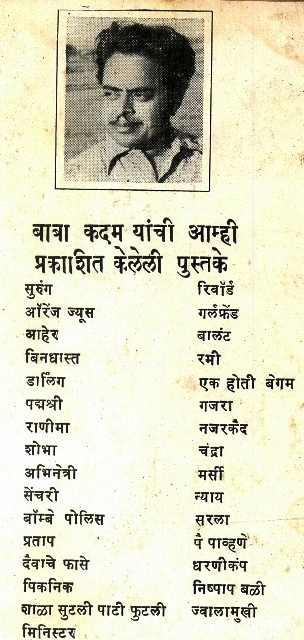 बाबा कदम यांची आम्ही
प्रकाशित केलेली पुस्तके
सुरुंग
ऑरेंज ज्यूस
आहेर
बिनधास्त
डार्लिंग
पद्मश्री
राणीमा
शोभा
अभिनेत्री
सेंचरी
बॉम्बे पोलिस
प्रताप
दैवाचे फासे
पिकनिक
शाळा सुटली पाटी फुटली
मिनिस्टर
रिवॉर्ड
गर्लफ्रेंड
बालंट
रमी
एक होती बेगम
गजरा
नजरकैद
चंद्रा
मर्सी
न्याय
सरला
पै पाव्हणे
धरणीकंप
निष्पाप बळी
ज्वालामुखी